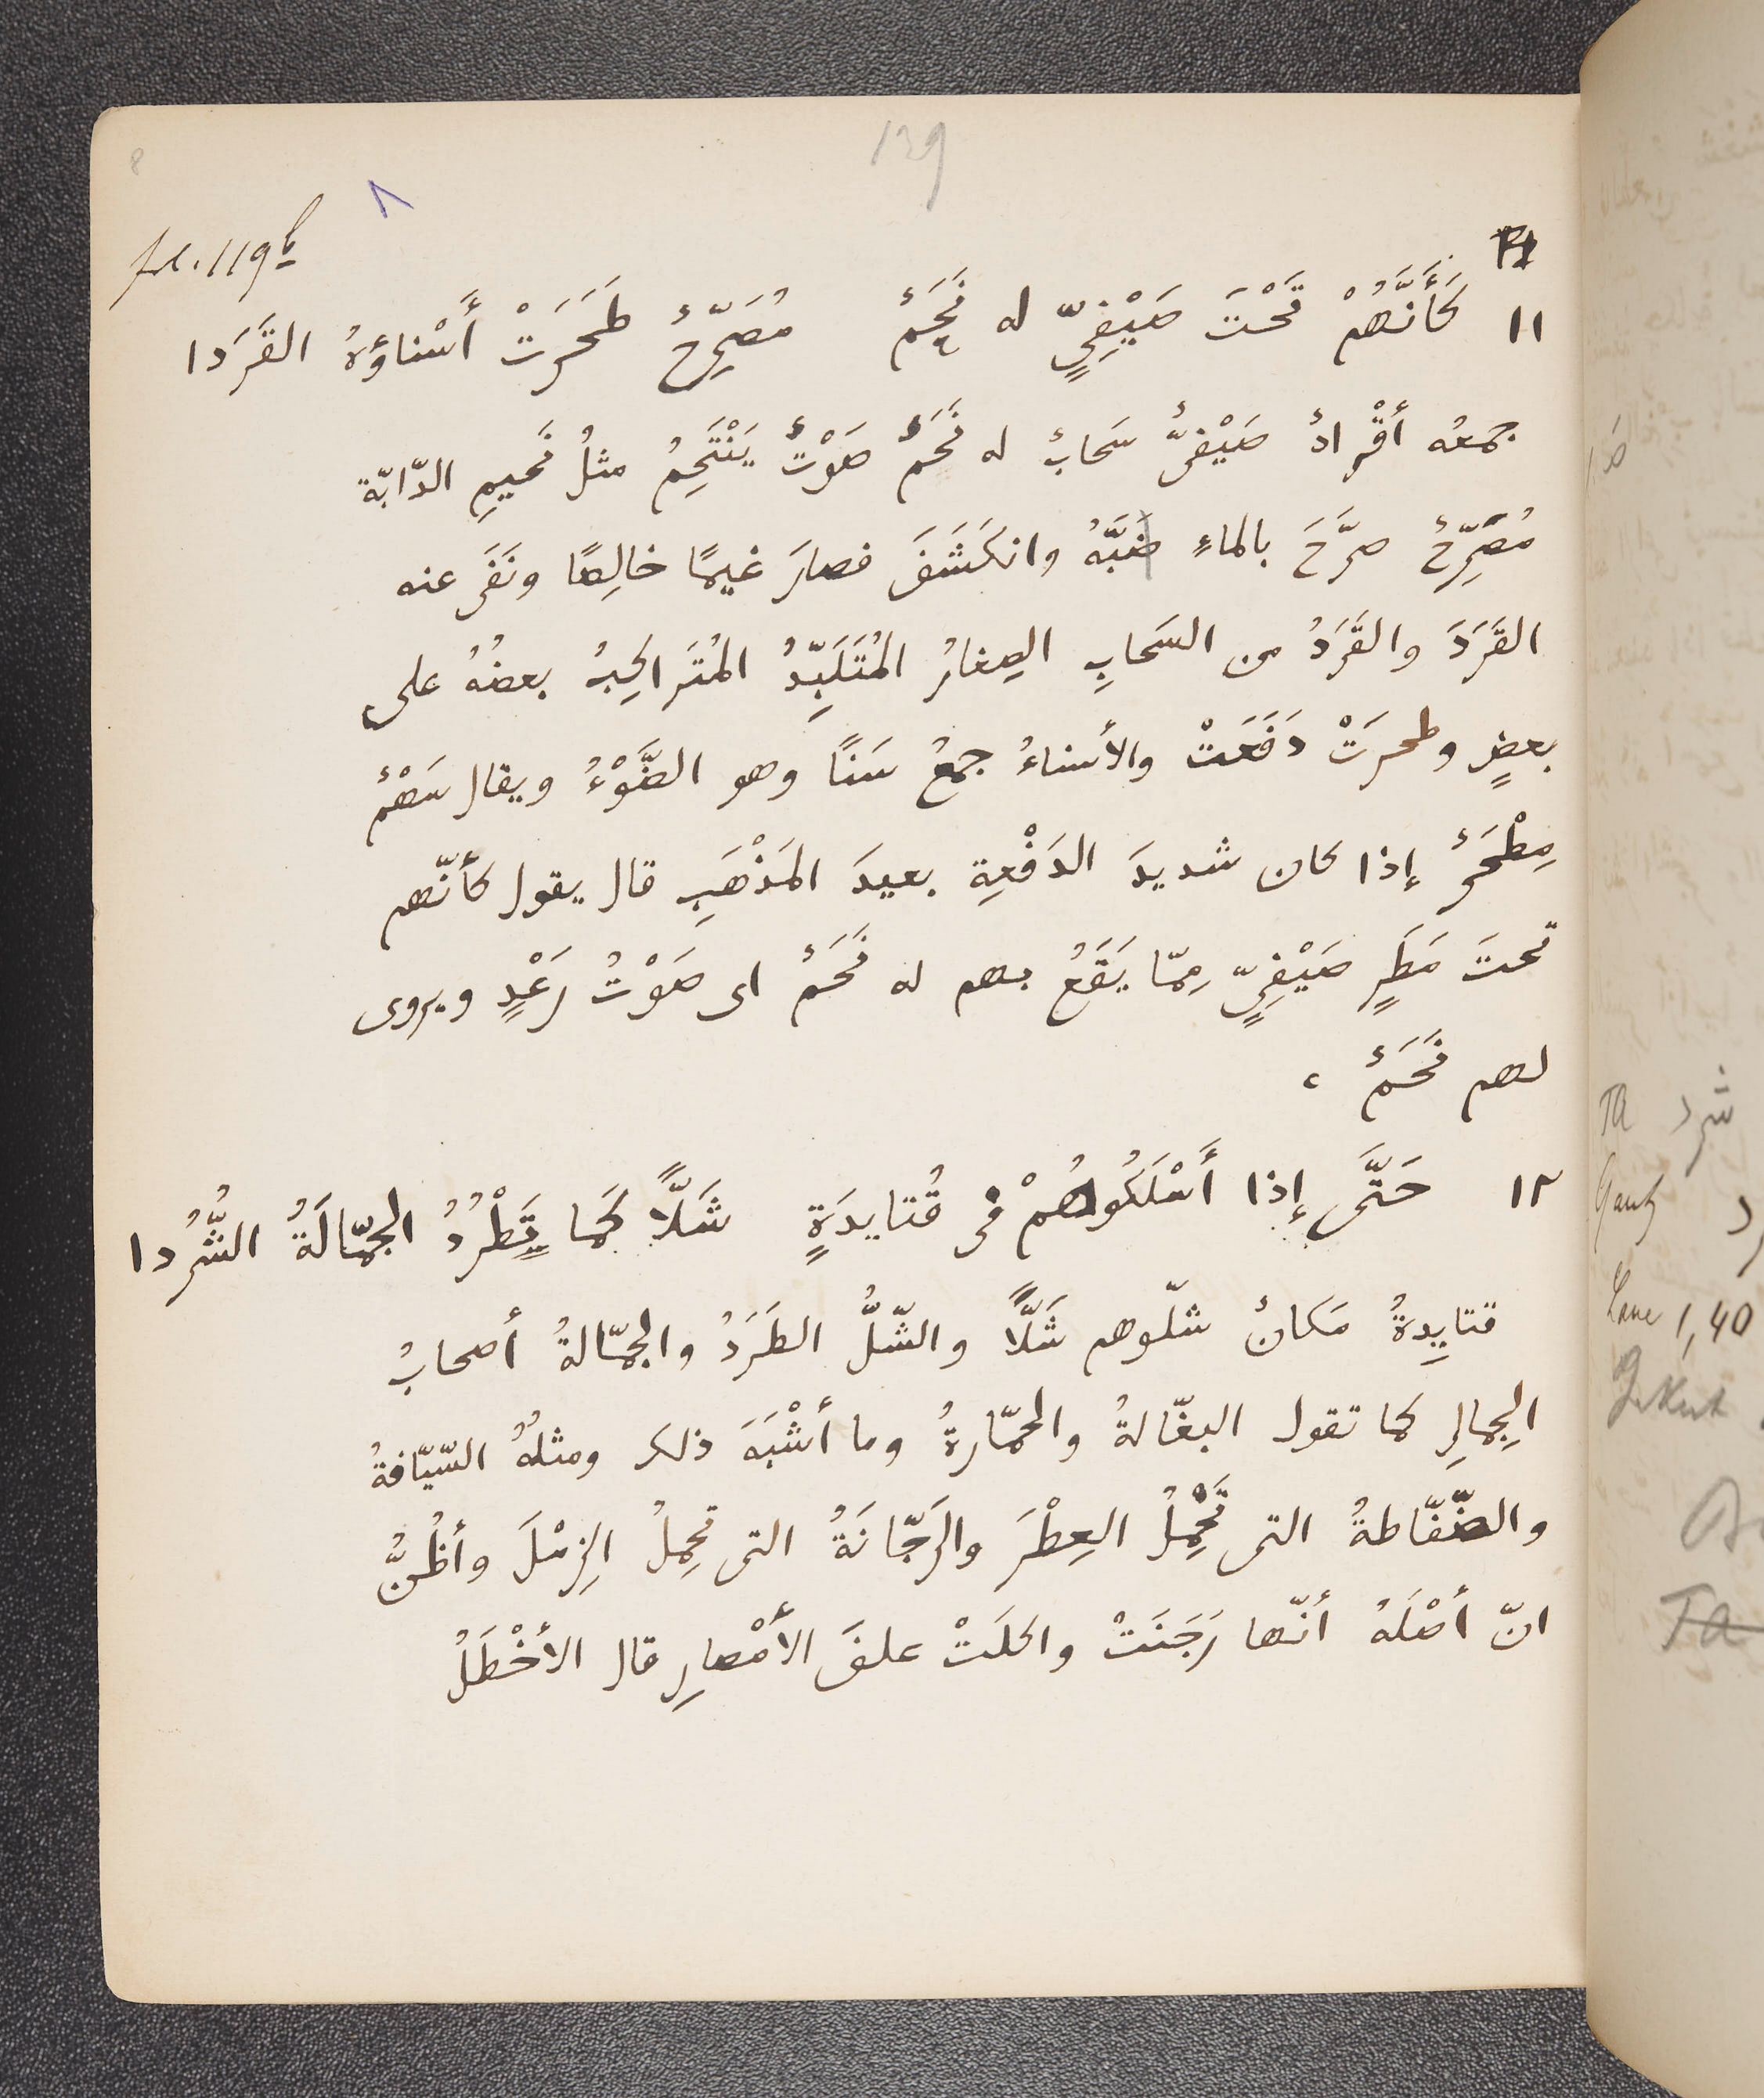 139
8
٨
fol. 119b
١١ كَأَنَّهُمْ تَحْتَ صَيْفِيٍّ له نَحَمٌ مُصَرِّحٌ طَحَرَتْ أَسْناؤهُ القَرَدا
جمعُه أقْرادٌ صَيْفىٌّ سَحابٌ له نَحَمٌ صَوْتٌ يَنْتَحِمُ مثلُ نَحيمِ الدّابّة
مُصَرِّحٌ صرَّحَ بالماءِ صَبَّهُ وانكَشَفَ فصارَ غيمًا خالِصًا ونَفَى عنه
القَرَدَ والقَرَدُ من السَحابِ الصِغارُ المُتَلَبِّدُ المُتَراكِبُ بعضُهُ على
بعضٍ وطحرَتْ دَفَعَتْ والأسناءُ جمعُ سَنًا وهو الضَّوْءُ ويقال سَهْمٌ
مِطْحَرٌ إذا كان شديدَ الدَفْعةِ بعيدَ المَذْهَبِ قال يقول كأنّهم
تحتَ مَطَرٍ صَيْفِىٍّ مِمّا يَقَعُ بهم له نَحَمٌ اى صَوْتُ رَعْدٍ ويروى
لهم نَحَمٌ ،
١٢ حَتَّى إذا أَسْلَكُوهُمْ فى قُتايدَةٍ شَلًّا كَما تَطْرُدُ الجَمّالَةُ الشُّرُدا
قتايِدةُ مَكانٌ شلّوهم شَلًّا والشَّلُّ الطَرَدُ والجمّالةُ أصحابُ
الجِمالِ كما تقول البغّالةُ والحمّارةُ وما أشْبَهَ ذلك ومثلُهُ السّيّافةُ
والضّفّاطةُ التى تَحْمِلُ العِطْرَ والرَجّانَةُ التى تحمِلُ الزِمْلَ وأظُنُّ
انّ أصْلَهُ أنّها رَجَنَتْ واكلَتْ علفَ الأمْصارِ قال الأخْطَلُ
TA شرد
Lane 1,40
TA